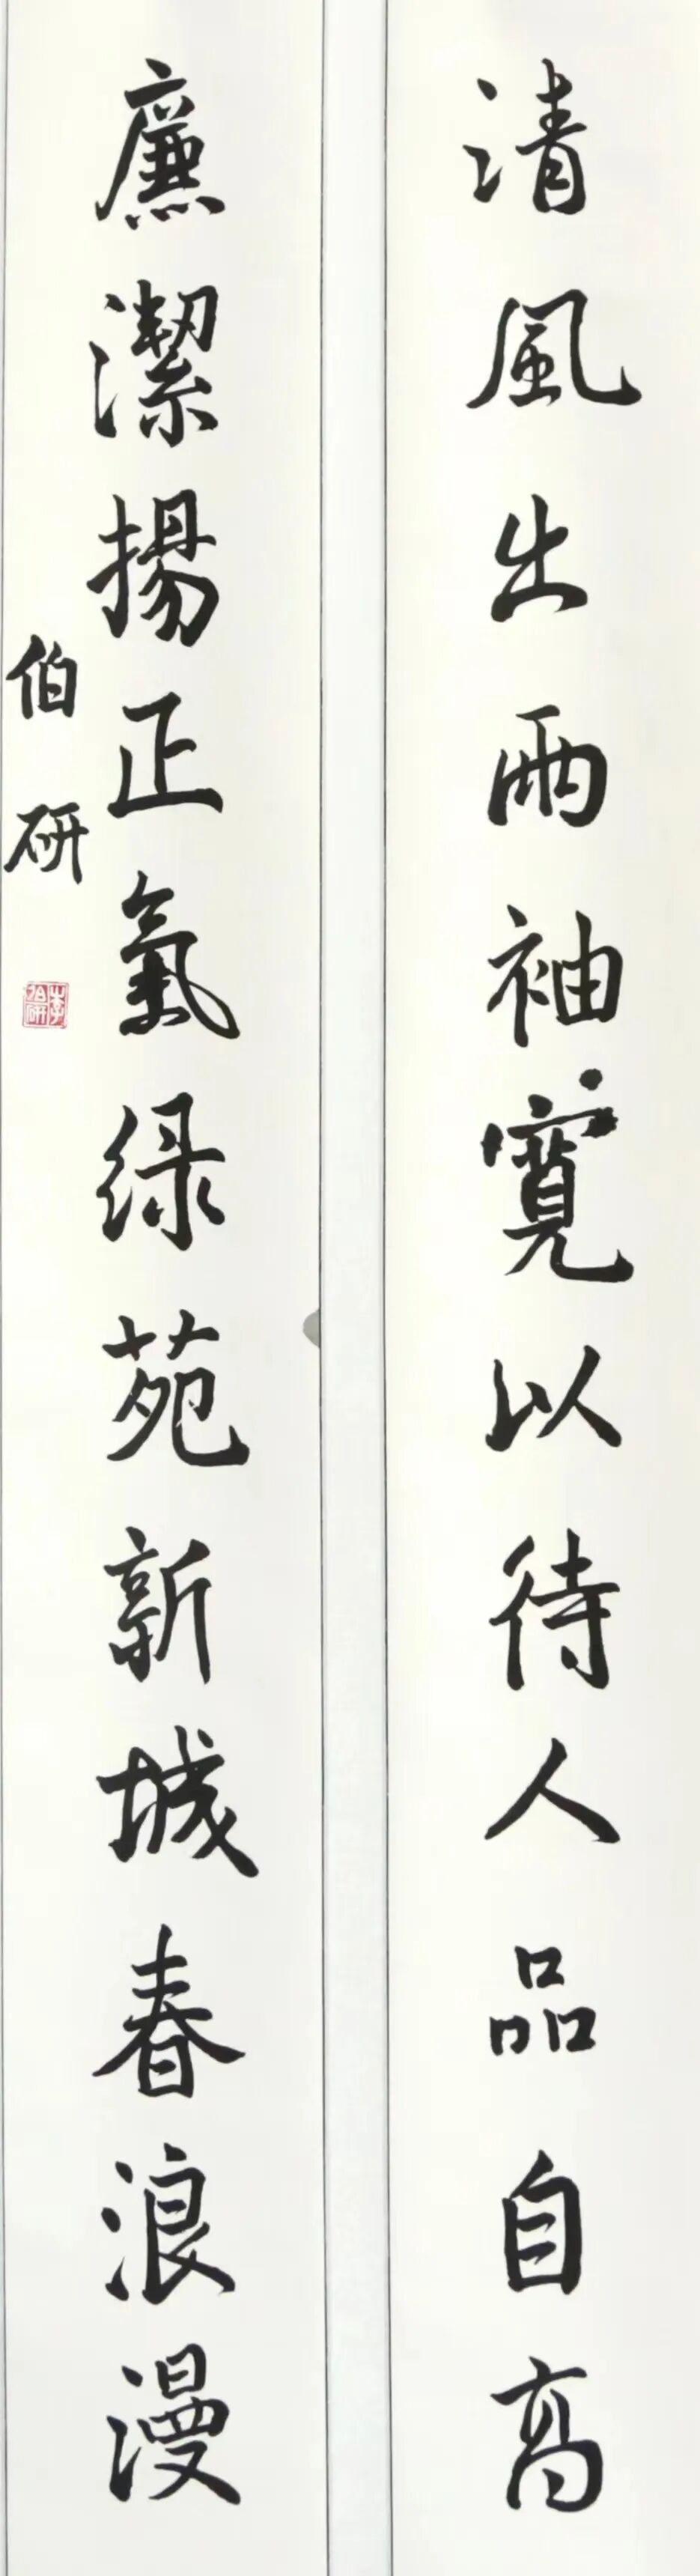 清風出兩袖寬以待人品自高
廉潔揚正氣绿苑新城春浪漫
伯研
李伯研